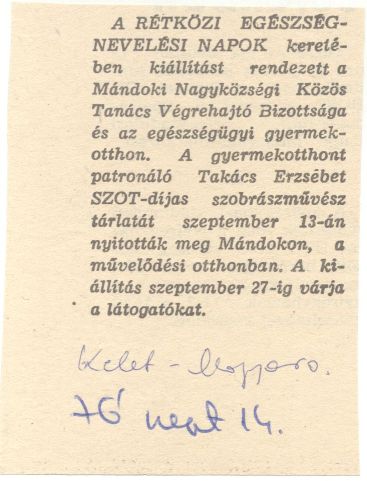 A RÉTKÖZI EGÉSZSÉG-
NEVELÉSI NAPOK kereté-
ben kiállítást rendezett a
Mándoki Nagyközségi Közös
Tanács Végrehajtó Bizottsága
és az egészségügyi gyermek-
otthon. A gyermekotthont
patronáló Takács Erzsébet
SZOT-díjas szobrászművész
tárlatát szeptember 13-án
nyitották meg Mándokon, a
művelődési otthonban. A ki-
állítás szeptember 27-ig várja
a látogatókat.
Kelet-Magyaro.
76 szept 14.